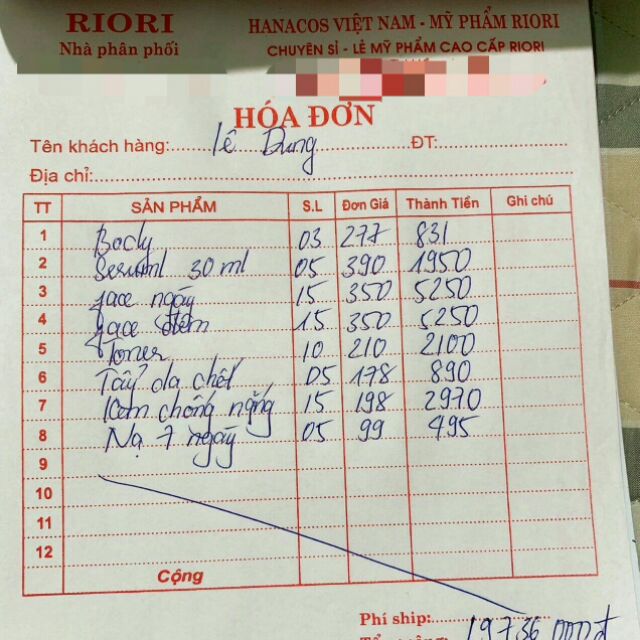 RIORI
Nhà phân phối
HANACOS VIỆT NAM - MỸ PHẨM RIORI
CHUYÊN SỈ - LẺ MỸ PHẨM CAO CẤP RIORI
HÓA ĐƠN
Tên khách hàng: Lê Dung ĐT:
Địa chỉ:
TT SẢN PHẨM S.L Đơn Giá Thành Tiền Ghi chú
1 Body 03 277 831
2 Serum 30 ml 05 390 1950
3 face ngày 15 350 5250
4 face đêm 15 350 5250
5 Toner 10 210 2100
6 Tẩy da chết 05 178 890
7 Kem chống nắng 15 198 2970
8 Nạ 7 ngày 05 99 495
9
10
11
12
Cộng
Phí ship:
19736 000đ